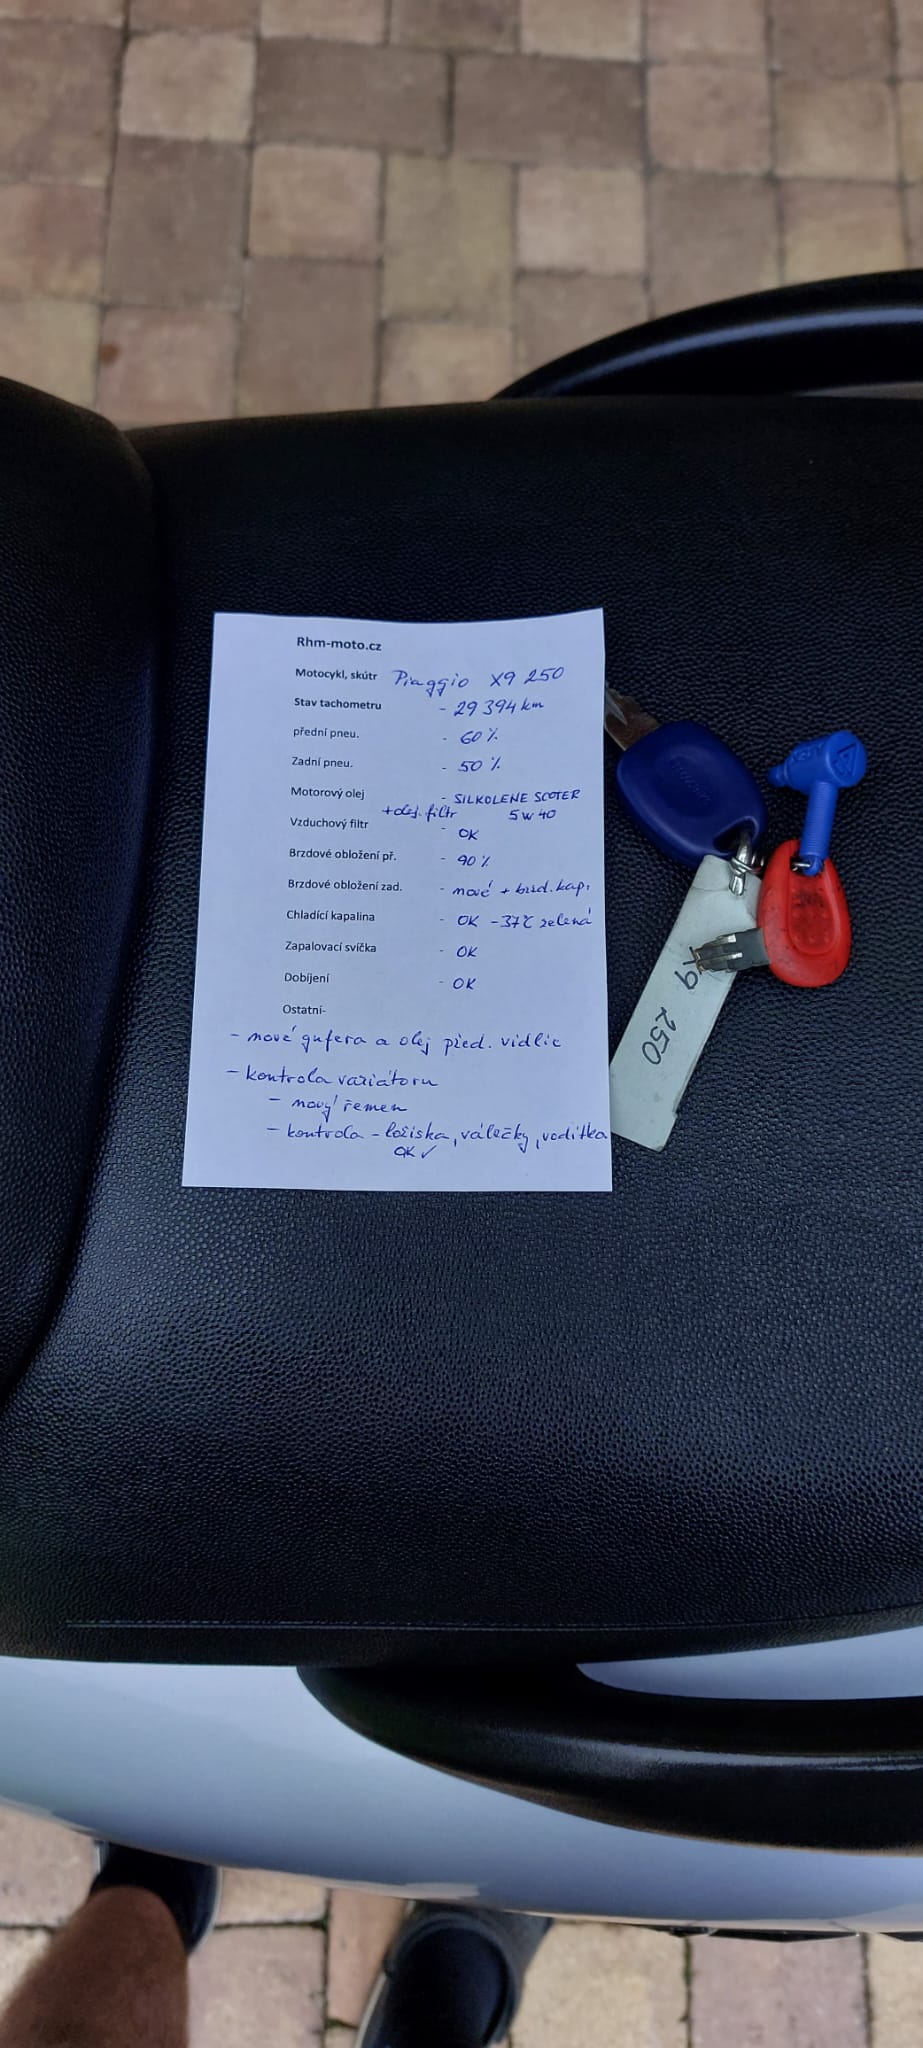 Rhm-moto.cz
Motocykl, skútr Piaggio X9 250
Stav tachometru - 29 394 km
přední pneu. - 60 %
Zadní pneu. - 50 %
Motorový olej - SILKOLENE SCOTER
+olej. filtr 5W40
Vzduchový filtr - OK
Brzdové obložení př. - 90 %
Brzdové obložení zad. - nové + brzd. kap.
Chladící kapalina - OK -37°C zelená
Zapalovací svíčka - OK
Dobíjení - OK
Ostatní-
- nové gufera a olej před. vidlic
- kontrola variátoru
- nový řemen
- kontrola - ložiska, válečky, vodítka
OK ✓
X9 250